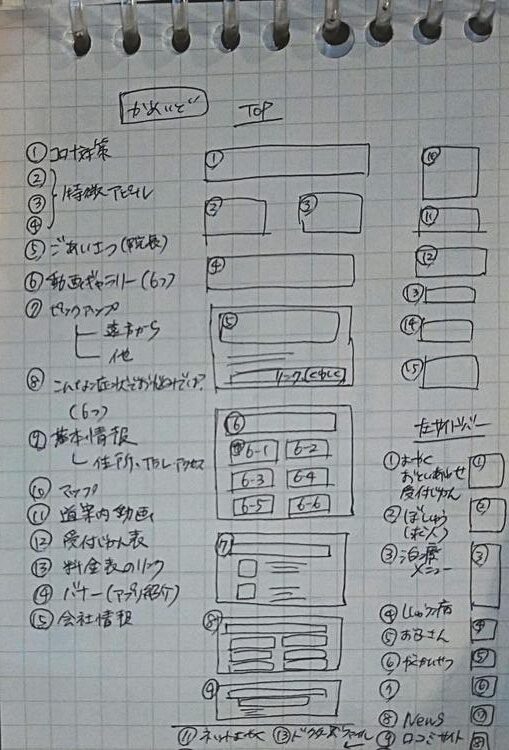 かめいど
TOP
① コロナ対策
②
③ 特徴アピール
④
⑤ ごあいさつ(院長)
⑥ 動画ギャラリー(6つ)
⑦ ピックアップ
遠方から
他
⑧ こんな症状でお悩みでは?
(6つ)
⑨ 基本情報
住所、TEL、アクセス
⑩ マップ
⑪ 道案内動画
⑫ 受付じかん表
⑬ 料金表のリンク
⑭ バナー(アプリ紹介)
⑮ 会社情報
①
②
③
④
⑤
リンク(くわしく)
⑥
6-1
6-2
6-3
6-4
6-5
6-6
⑦
⑧
⑨
⑩
⑪
⑫
⑬
⑭
⑮
左サイドバー
① よやく
おといあわせ
受付じかん
①
② ぼしゅう
(求人)
②
③ 治療
メニュー
③
④
④
⑤ お子さん
⑤
⑥
⑥
⑦
⑦
⑧ News
⑧
⑨ 口コミサイト
⑪ ネットよやく
⑬ ドクターズファイル